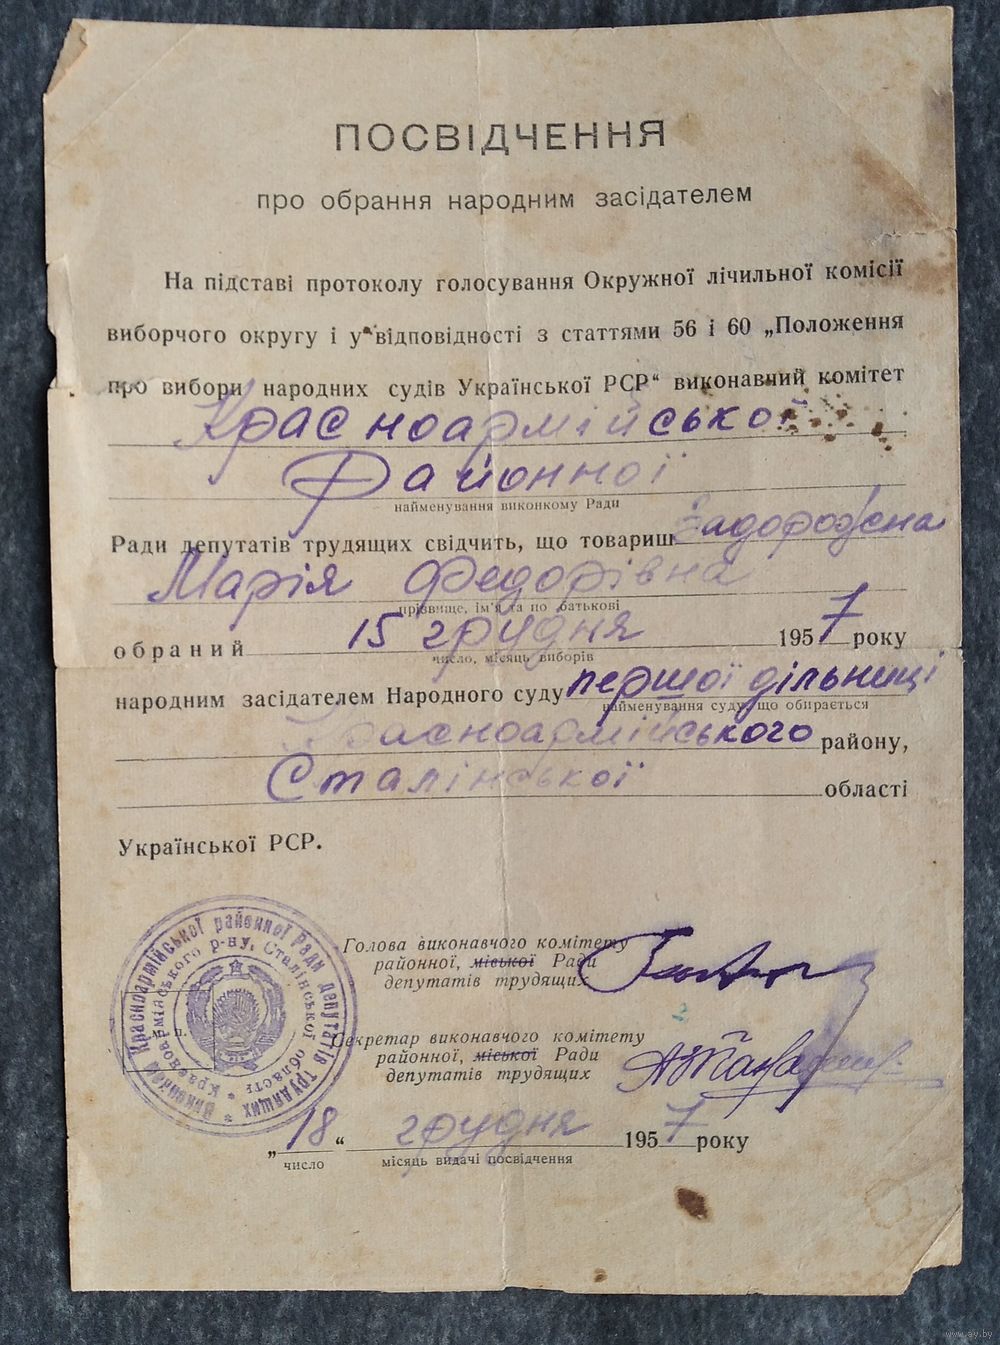 ПОСВІДЧЕННЯ
про обрання народним засідателем
На підставі протоколу голосування Окружної лічильної комісії
виборчого округу і у відповідності з статтями 56 і 60 „Положення
про вибори народних судів Української РСР“ виконавчий комітет
Красноармійської
Районної
найменування виконкому Ради
Ради депутатів трудящих свідчить, що товариш Задорожна
Марія Федорівна
прізвище, ім'я та по батькові
обраний 15 грудня 1957 року
число, місяць виборів
народним засідателем Народного суду першої дільниці
найменування суду, що обирається
Красноармійського району,
Сталінської області
Української РСР.
Голова виконавчого комітету
районної, міської Ради
депутатів трудящих
Секретар виконавчого комітету
районної, міської Ради
депутатів трудящих
Виконком Красноармійської районної Ради депутатів трудящих
Красноармійського р-ну, Сталінської області
М. п.
„18“ грудня 1957 року
число місяць видачі посвідчення
www.ay.by